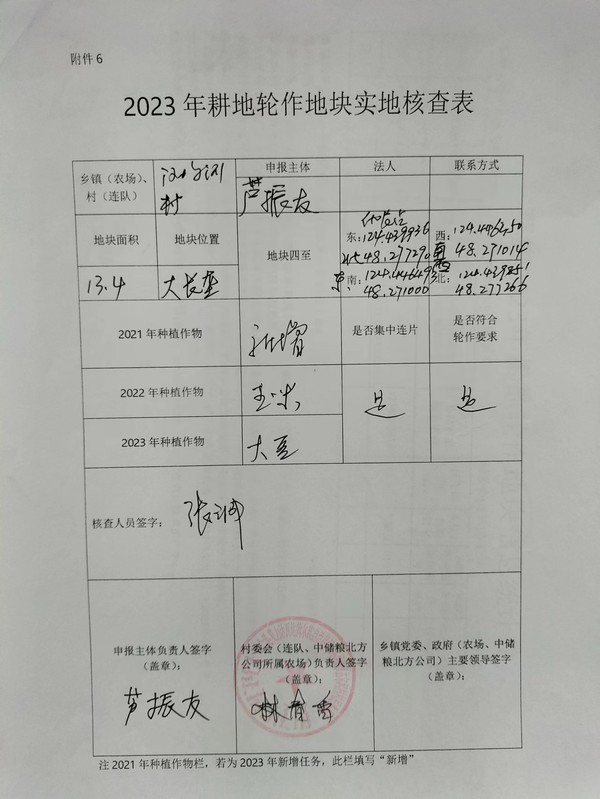 附件 6
2023 年耕地轮作地块实地核查表
乡镇（农场）、
村（连队）
村
申报主体
法人
联系方式
芦振友
地块面积
地块位置
地块四至
东：124.439936
48.277290
西：124.446250
48.271014
13.4
大长垄
南：124.446493
48.271000
北：124.439851
48.277266
2021 年种植作物
新增
是否集中连片
是否符合
轮作要求
2022 年种植作物
玉米
是
是
2023 年种植作物
大豆
核查人员签字：
张
申报主体负责人签字
（盖章）：
芦振友
村委会（连队、中储粮北方
公司所属农场）负责人签字
（盖章）：
林
乡镇党委、政府（农场、中储
粮北方公司）主要领导签字
（盖章）：
注 2021 年种植作物栏，若为 2023 年新增任务，此栏填写“新增”